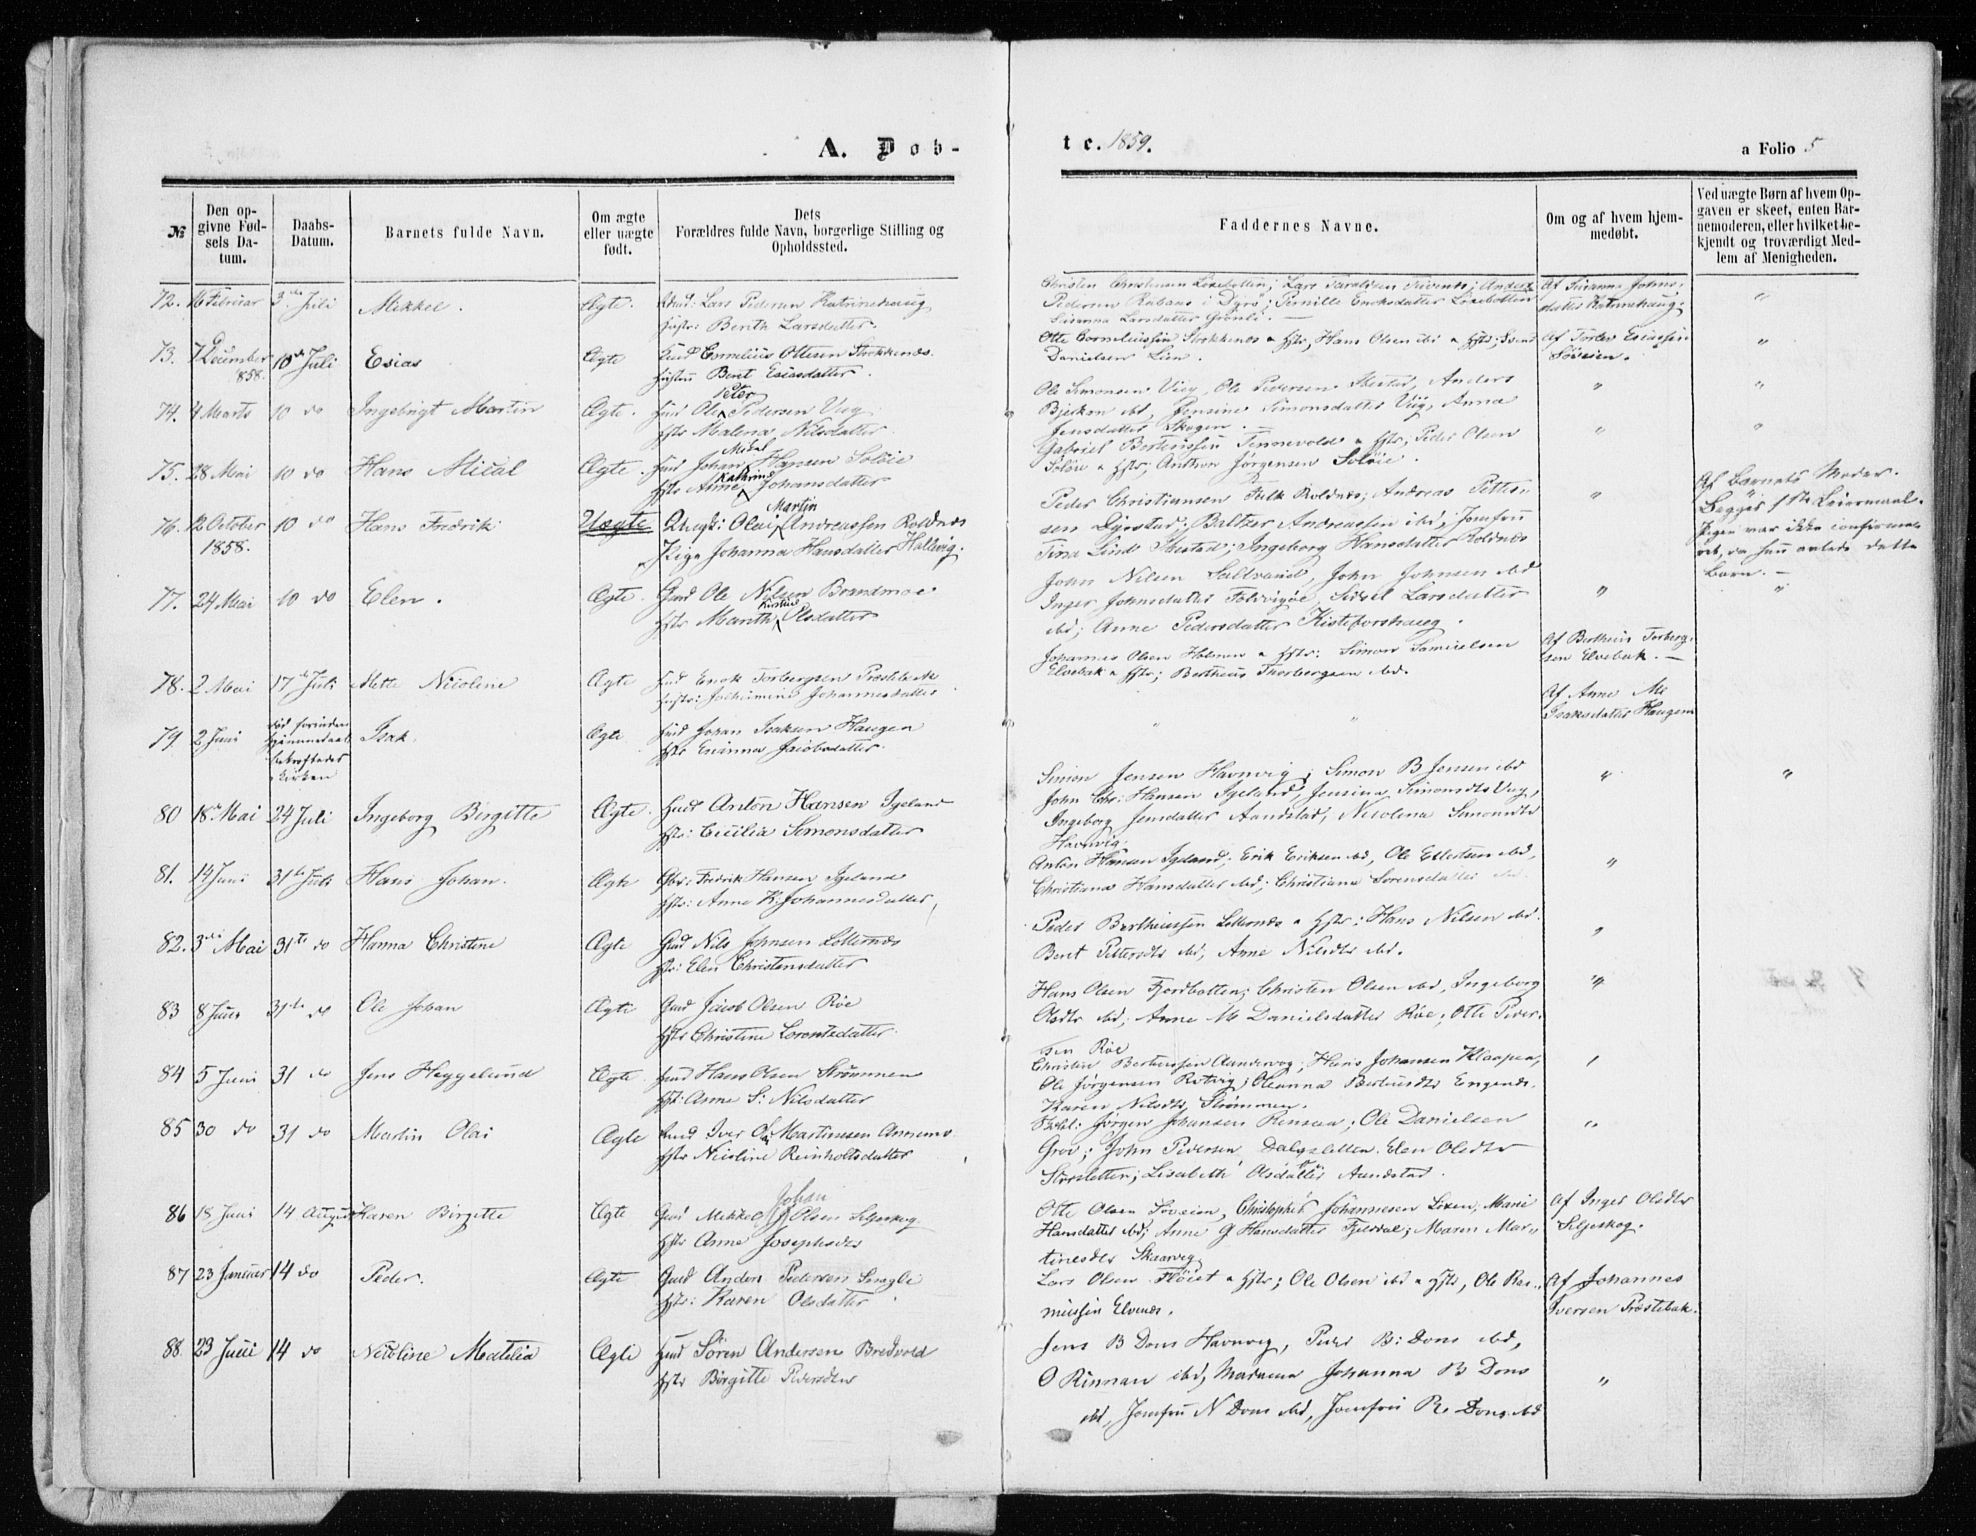 A. Døb-
te. 1859.
a Folio 5
№
Den opgivne Fødsels Datum.
Daabs-Datum.
Barnets fulde Navn.
Om ægte eller uægte født.
Dets Forældres fulde Navn, borgerlige Stilling og Opholdssted.
Faddernes Navne.
Om og af hvem hjemmedøbt.
Ved uægte Børn af hvem Opgaven er skeet, enten Barnemoderen, eller hvilket bekjendt og troværdigt Medlem af Menigheden.
72. 16 Februar 3die Juli Mikkel. Ægte. Lars Pedersen Katrinehaug
Hustr: Berith Larsdatter.
Christen Christensen Löxebotten; Lars Taraldsen
Pedersen i Dyrö; Pernille Eriksdatter Löxebotten
Susanna Larsdatter Grönli. —
Af Susanna Johns-
datter Katrinehaug.
"
73. 7 December 1858. 10de Juli Esias Ægte Huusd Cornelius Ottesen Strokkenæs.
Hustru Berit Esiasdatter.
Otte Corneliussen Strokkenæs & Hstr, Hans Olsen ibd & Hstr;
Danielsen Lien.
Af Torlev Esiassen
Söveien.
"
74. 4 Marts 10 do Ingebrigt Martin Ægte. Huusd Ole Peter Pedersen Viig
Hstr Malena Nilsdatter
Ole Simonsen Viig, Ole Pedersen Skestad, Anders
ibd, Jensine Simonsdatter Viig, Anna
Jensdatter Skogen.
" "
75. 28 Mai 10 do Hans Mical Ægte. Huusd Johan Mical Hansen Solöie
Hstr Anne Kathrine Johansdatter
Gabriel Berteussen Tennevold & Hstr; Peder Olsen
Solöie & Hstr, Anthon Jörgensen Solöie.
" "
76. 12 October 1858. 10 do Hans Fredrik Uægte Ungk: Olai Martin Andreassen Roldnæs
Pige Johanna Hansdatter Hallevig.
Peder Christiansen Falk Roldnæs; Andreas Petter-
sen Dyrstad; Baltzer Andreassen ibd; Jomfru
Tina Lind Skestad; Ingeborg Hansdatter Roldnæs
"
Af Barnets Moder.
Begges 1ste Leiermaal.
Pigen var ikke confirme-
ret, da hun avlede dette
Barn. —
77. 24 Mai 10 do Elen. Ægte. Huusd Ole Nilsen Brandmoe
Hstr Marith Kirstine Olsdatter
John Nilsen Saltvand, John Johnsen ibd
Inger Johnsdatter Foldvigöe, Sidsel Larsdatter
ibd; Anne Pedersdatter Kisteforshaug.
" "
78. 2 Mai 17de Juli Mette Nicoline Ægte Huusd Enok Torbergsen Præstbakk
Hustr: Jochimine Johannesdatter
Johannes Olsen Holmen & Hstr: Simon Samuelsen
Elvebak & Hstr; Bertheus Thorbergsen ibd.
Af Bertheus Torberg-
sen Elvebak. —
79 2 Juni död forinden
Hjemmedaab
bekræftedes
i Kirken Isak. Ægte Huusd Johan Isaksen Haugen
Hstr Jacobsdatter.
" "
Af Anne M:
Isaksdatter Haugen
80 18de Mai 24 Juli Ingeborg Birgitte Ægte. Huusd Anton Hansen Igeland
Hstr: Cecilia Simonsdatter
Simon Jensen Havnvig; Simon B Jensen ibd
John Chr: Hansen Igeland, Jensina Simonsdtr Viig,
Ingeborg Jensdatter Aandstad, Nicolena Simonsdtr
Havnvig.
" "
81. 14 Juni 31te Juli Hans Johan. Ægte Gbr: Fredrik Hansen Igeland
Hstr: Anne K. Johannesdatter,
Anton Hansen Igeland; Erik Eriksen ibd, Ole Ellertsen ibd,
Christiana Hansdatter ibd; Christiana Sörensdatter ibd.
"
82. 3die Mai 31te do Hanna Christine Ægte Gaard Nils Johnsen Lotternæs
Hstr: Elen Christensdatter
Peder Bertheussen Lotternæs & Hstr; Hans Nilsen ibd.
Berit Pettersdtr ibd, Anne Nilsdtr ibd.
"
83 8 Juni 31te do Ole Johan Ægte Gaard Jacob Olsen Röe
Hstr Christine Lorentzdatter.
Hans Olsen Fjordbotten; Christen Olsen ibd, Ingeborg
Olsdtr ibd; Anne M Danielsdatter Röe; Otte Peder-
sen Röe
"
84 5 Juni 31 do Jens Heggelund Ægte Huusd Hans Olsen Strömmen
Hstr: Anne S: Nilsdatter
Christen Berteussen Aandervag, Hans Johansen Klaapen,
Ole Jörgensen Rotvig; Oleanna Berteusdtr Engenæs.
Karen Nilsdtr Strömmen.
"
85 30 do 31 do Martin Olai Ægte Huusd Iver Ole Martinusen
Hstr Nicoline Reinholtsdatter
Jörgen Johansen Rensaa; Ole Danielsen
Grov; John Pedersen Dalssletten. Elen Olsdtr
Storsletten; Lisabeth Olsdatter Aandstad.
"
86 18 Juni 14 August Karen Birgitte Ægte Gaard Mikkel Johan Olsen Seljeskog
Hstr Anne Josephsdtr
Otte Olsen Söveien, Christopher Johannesen Löxen, Marie
Hansdatter ibd; Anne G Hansdatter Fjeldal; Maren Mar-
tinesdtr Skaarvig
Af Inger Olsdtr
Seljeskog.
87 23 Januar 14 do Peder. Ægte Gaard Anders Pedersen Snugle
Hstr: Karen Olsdatter
Lars Olsen Flöiet & Hstr; Ole Olsen ibd & Hstr, Ole Ras-
mussen Elvenæs.
Af Johannes
Iversen Prostebak.
88 23 Juni 14 do Nicoline Matilia Ægte Huusd Sören Andersen Bredvold
Hstr Birgitte Pedersdtr
Jens B Dons Havnvig, Peder B: Dons ibd,
O Rinnan ibd, Madame Johanna B Dons
ibd, Jomfru N Dons ibd, Jomfru R. Dons ibd
"